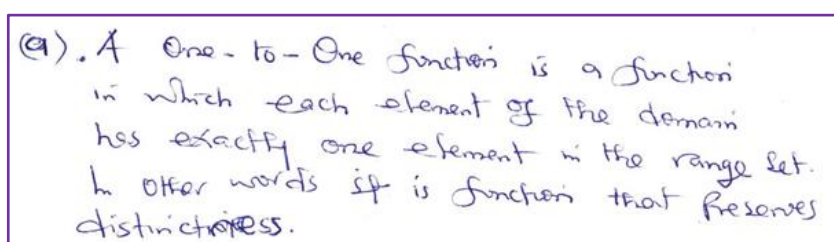 (a). A One-to-One function is a function
in which each element of the domain
has exactly one element in the range set.
In other words it is function that Preserves
distinctness.